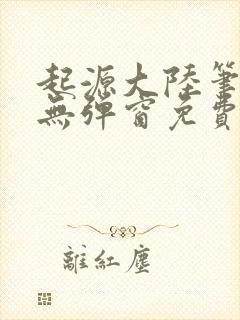 起源大陸筆
無彈窗免費
離紅塵